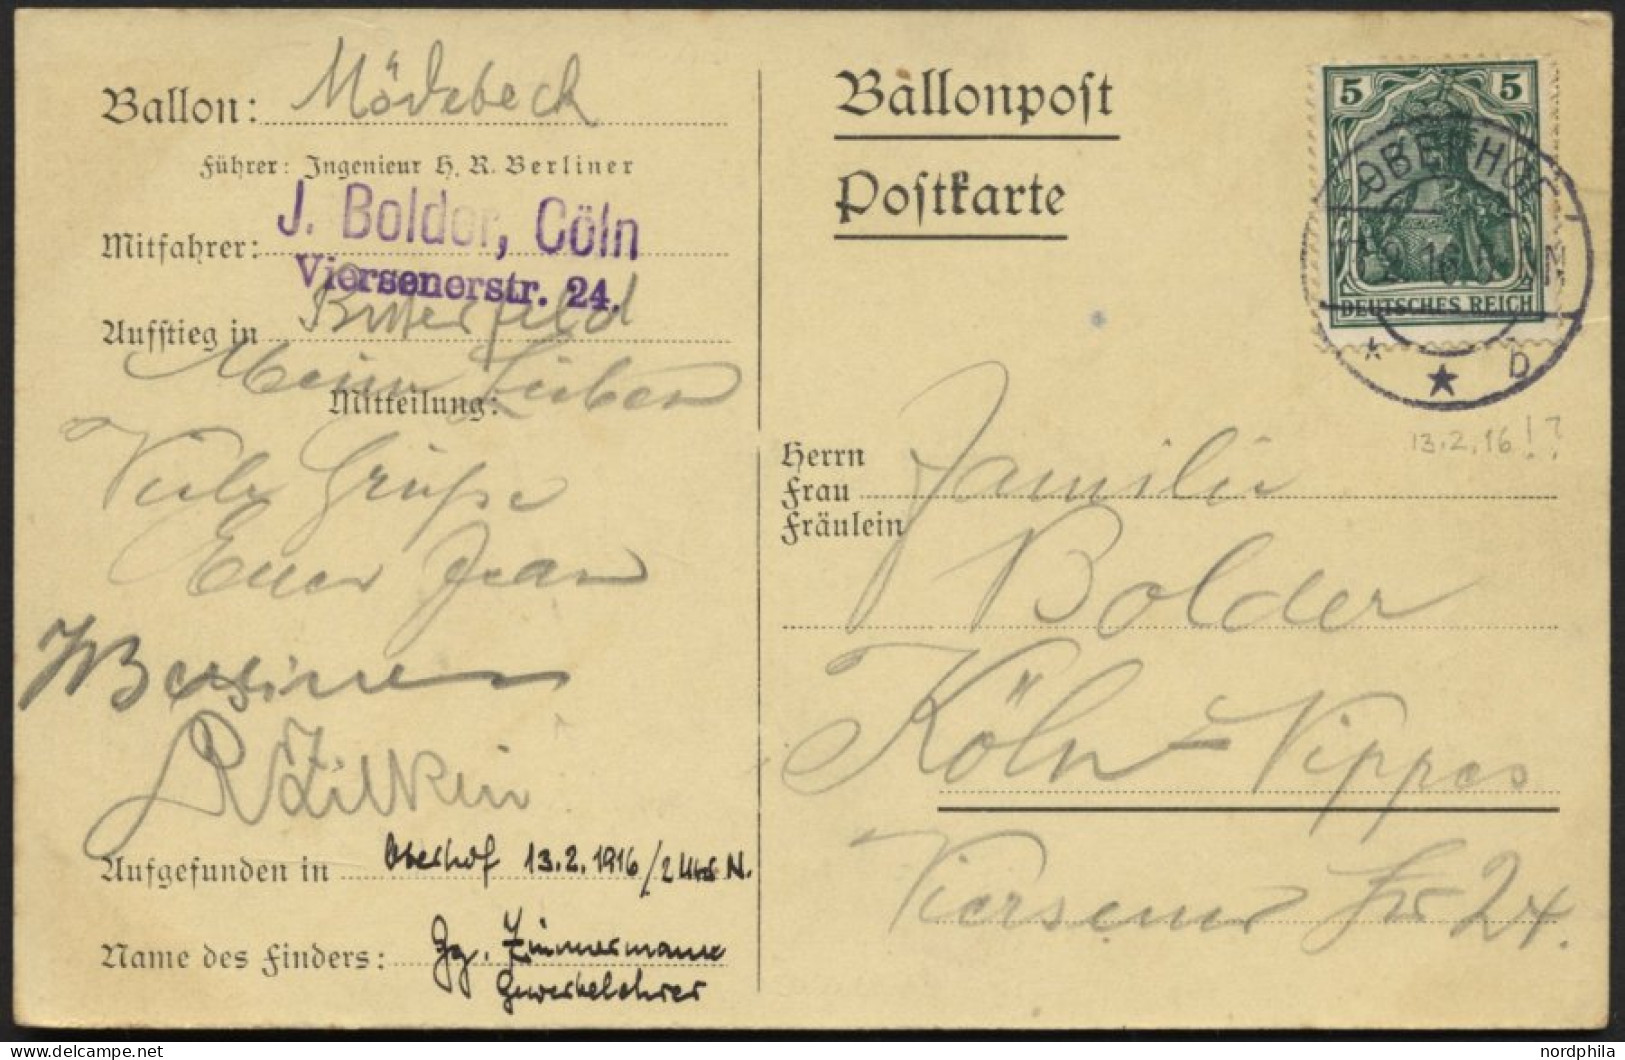 Ballon: Mödebeck
Führer: Ingenieur H. R. Berliner
J. Bolder, Cöln
Mitfahrer:
Viersenerstr. 24.
Aufstieg in Bitterfeld
Meine Lieben
Mitteilung:
Viele Grüße
Euer Jean
Berliner
Aufgefunden in Oberhof 13.2.1916/2 Uhr N.
Name des Finders: Gg. Zimmermann
Gewerbelehrer
Ballonpost
Postkarte
5 5
OBERHOF
DEUTSCHES REICH
b
13.2.16!?
Herrn
Frau
Fräulein
Familie
Bolder
Köln-Nippes
Viersener Str 24.
delcampe.net
nordphila